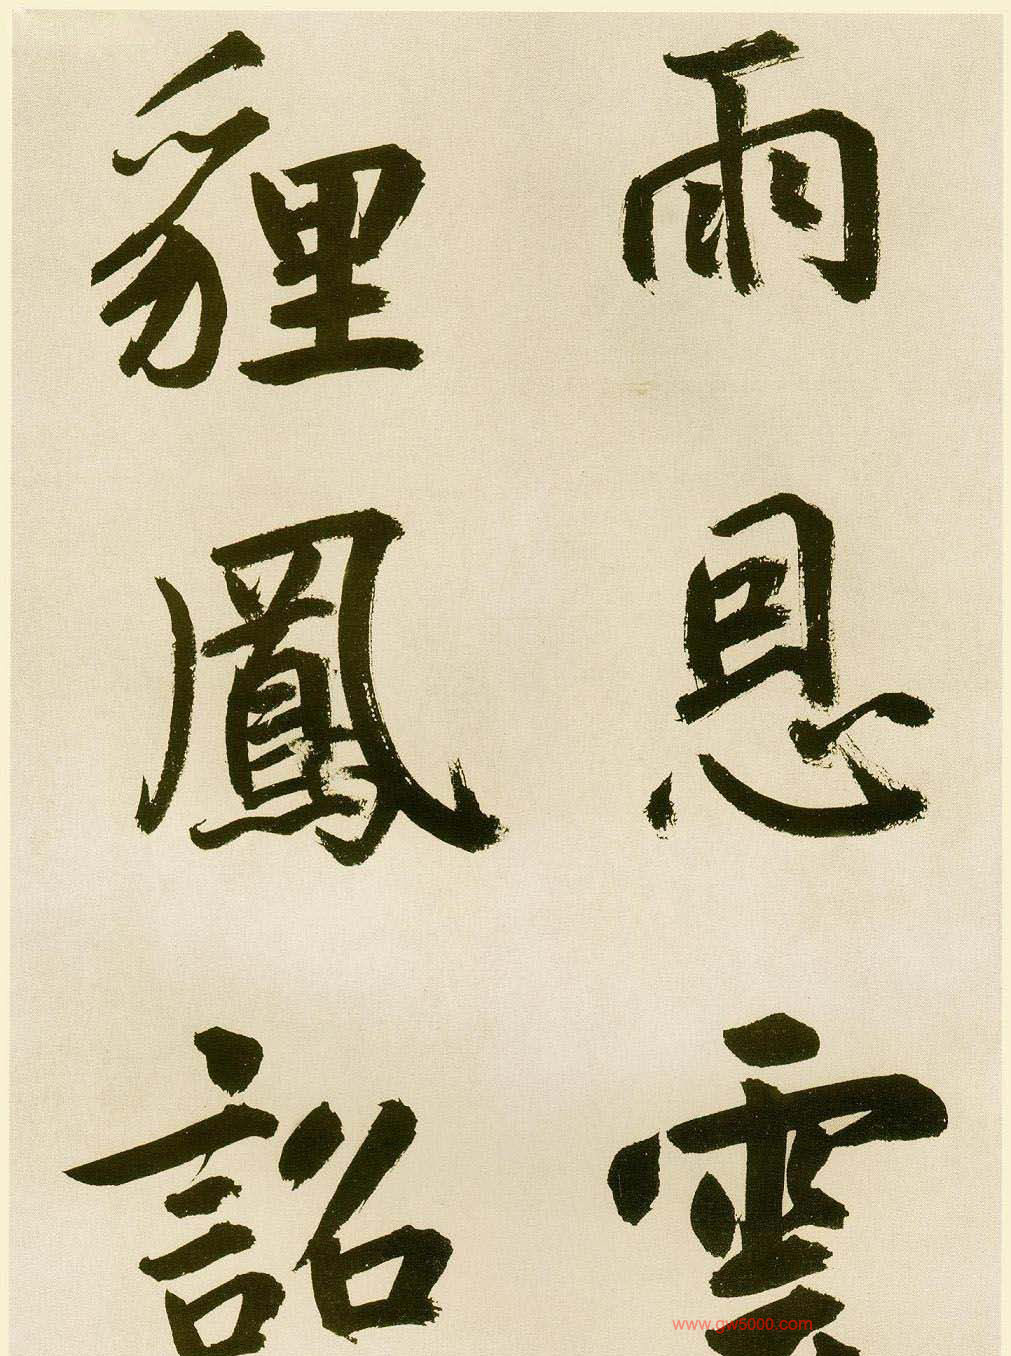 雨恩雲
貍鳳詔
www.gw5000.com